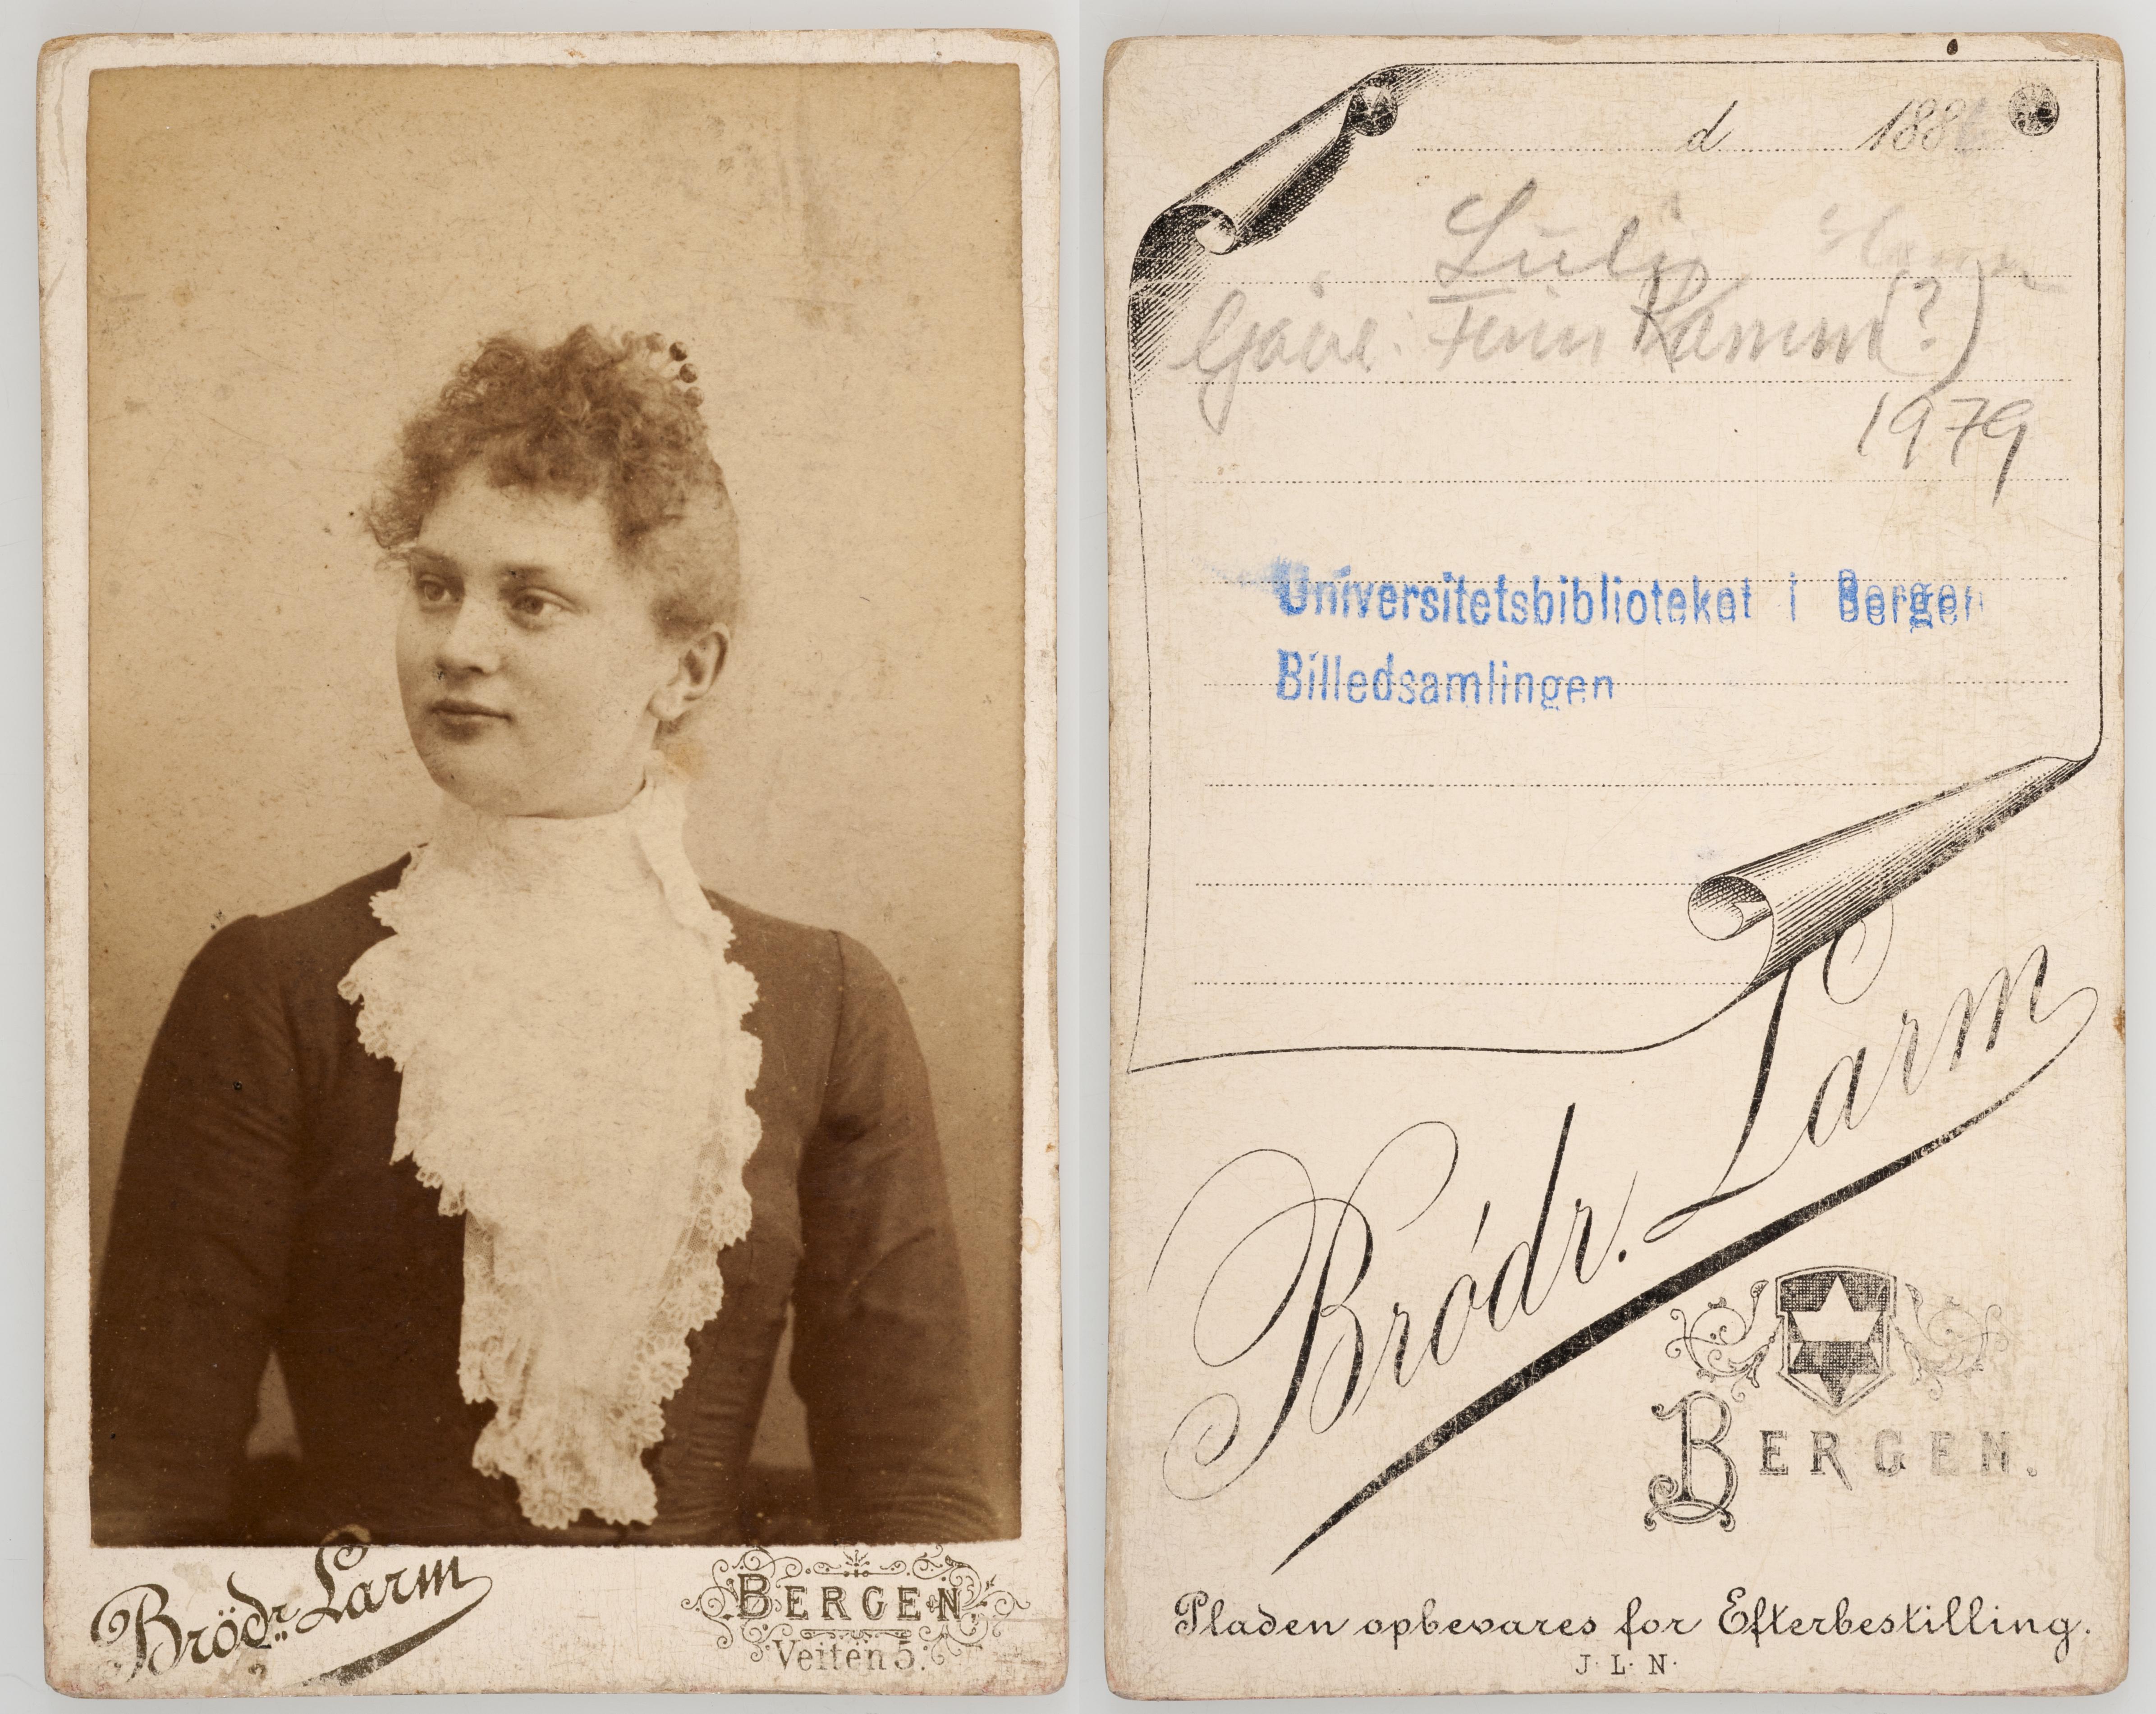 Brödr. Larm
BERGEN,
Veiten 5.
d 188
Gave: Finn (?)
1979
Universitetsbiblioteket i Bergen
Billedsamlingen
Bródr. Larm
BERGEN.
Pladen opbevares for Efterbestilling.
J. L. N.